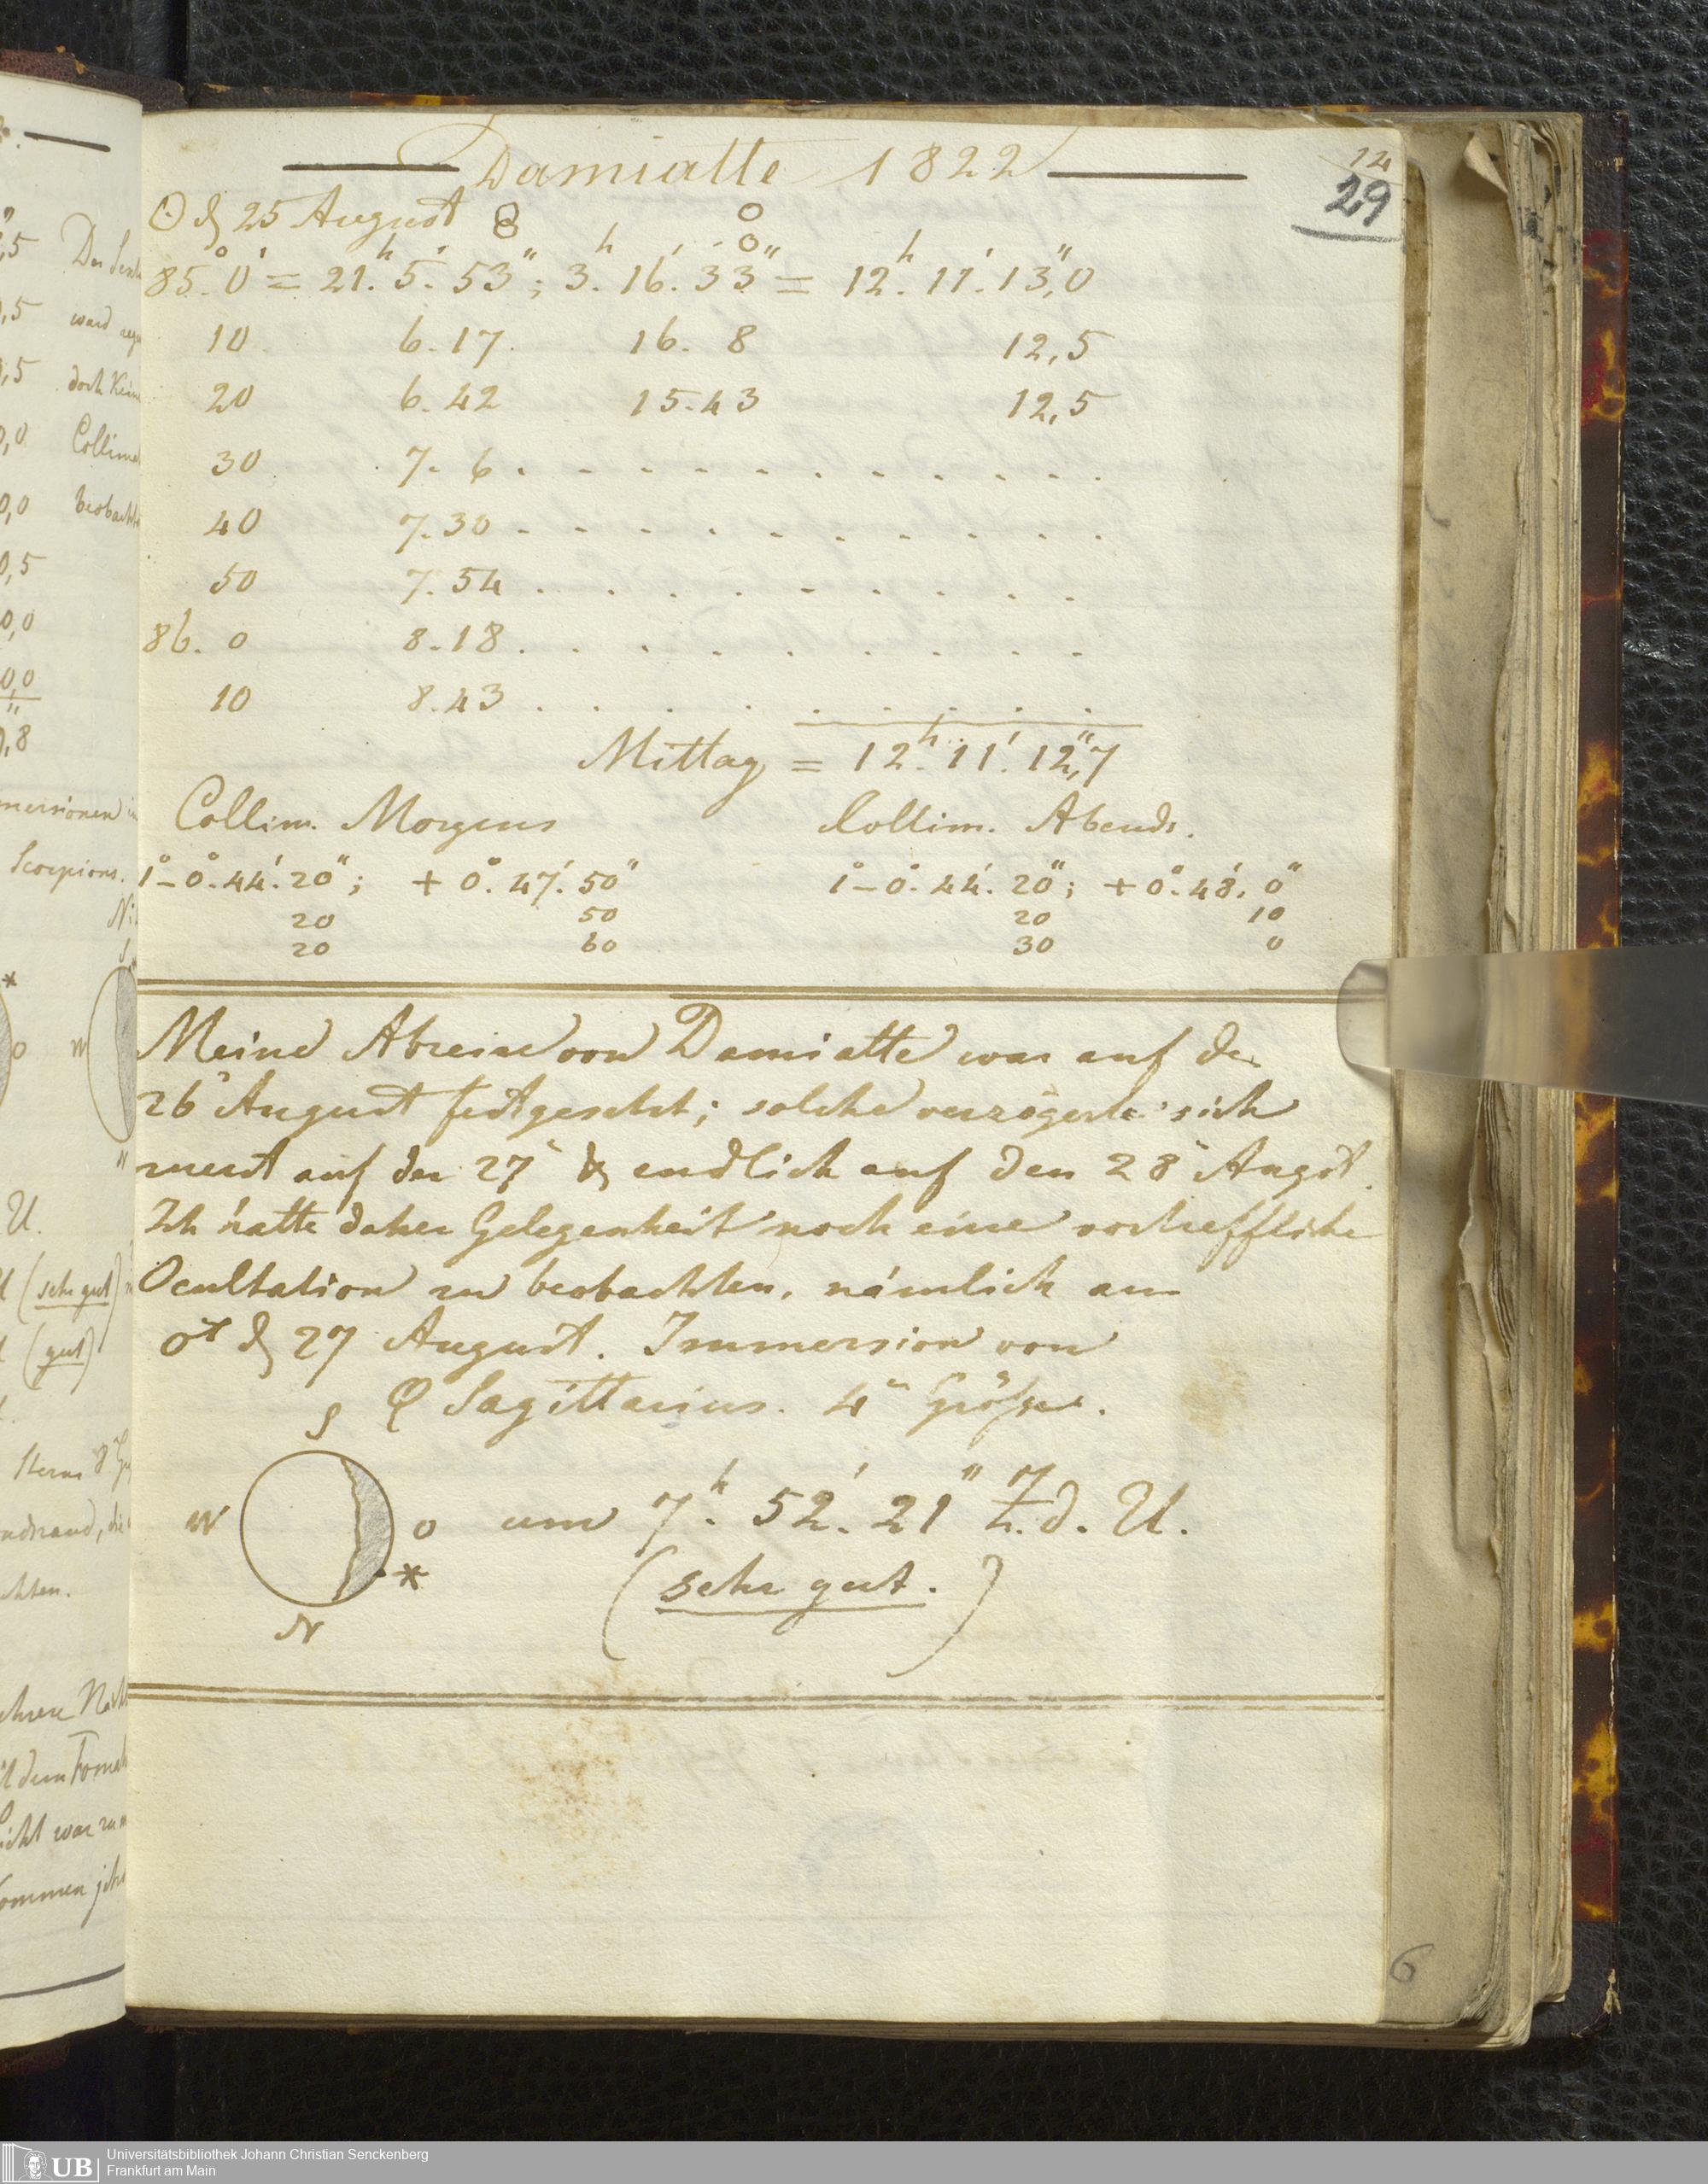 Damiatte 1822
12
29
☉ d. 25 August
85.° 0' = 21.h 5.' 53"; 3.h 16.' 33" = 12.h 11.' 13",0
10 6.17 16. 8 12,5
20 6.42 15.43 12,5
30 7. 6 . . . . . . . . . . .
40 7.30 . . . . . . . . . . .
50 7.54 . . . . . . . . .
86. 0 8.18 . . . . . . . . .
10 8.43 . . . . . . . . .
Mittag = 12.h 11.' 12",7
Collim. Morgens Collim. Abends.
1° – 0°. 44'. 20"; + 0°. 47'. 50" 1° – 0°. 44'. 20"; + 0°. 48'. 0"
20 50 20 10
20 60 30 0
Meine Abreise von Damiatte war auf den
26n August festgesetzt; solche verzögerte sich
zuerst auf den 27n & endlich auf den 28n Augst.
Ich hatte daher Gelegenheit noch eine vortreffliche
Ocultation zu beobachten, nämlich am
♂ d. 27 August. Immersion von
φ Sagittarius. 4r Größe.
S
W O * um 7.h 52.' 21" Z. d. U.
N
(sehr gut.)
6
Der
ward
doch Kein
Collima
beobacht
mersionen
Scorpions.
U.
(sehr gut)
(gut)
Sterns 8
chten.
ommen
UB Universitätsbibliothek Johann Christian Senckenberg
Frankfurt am Main